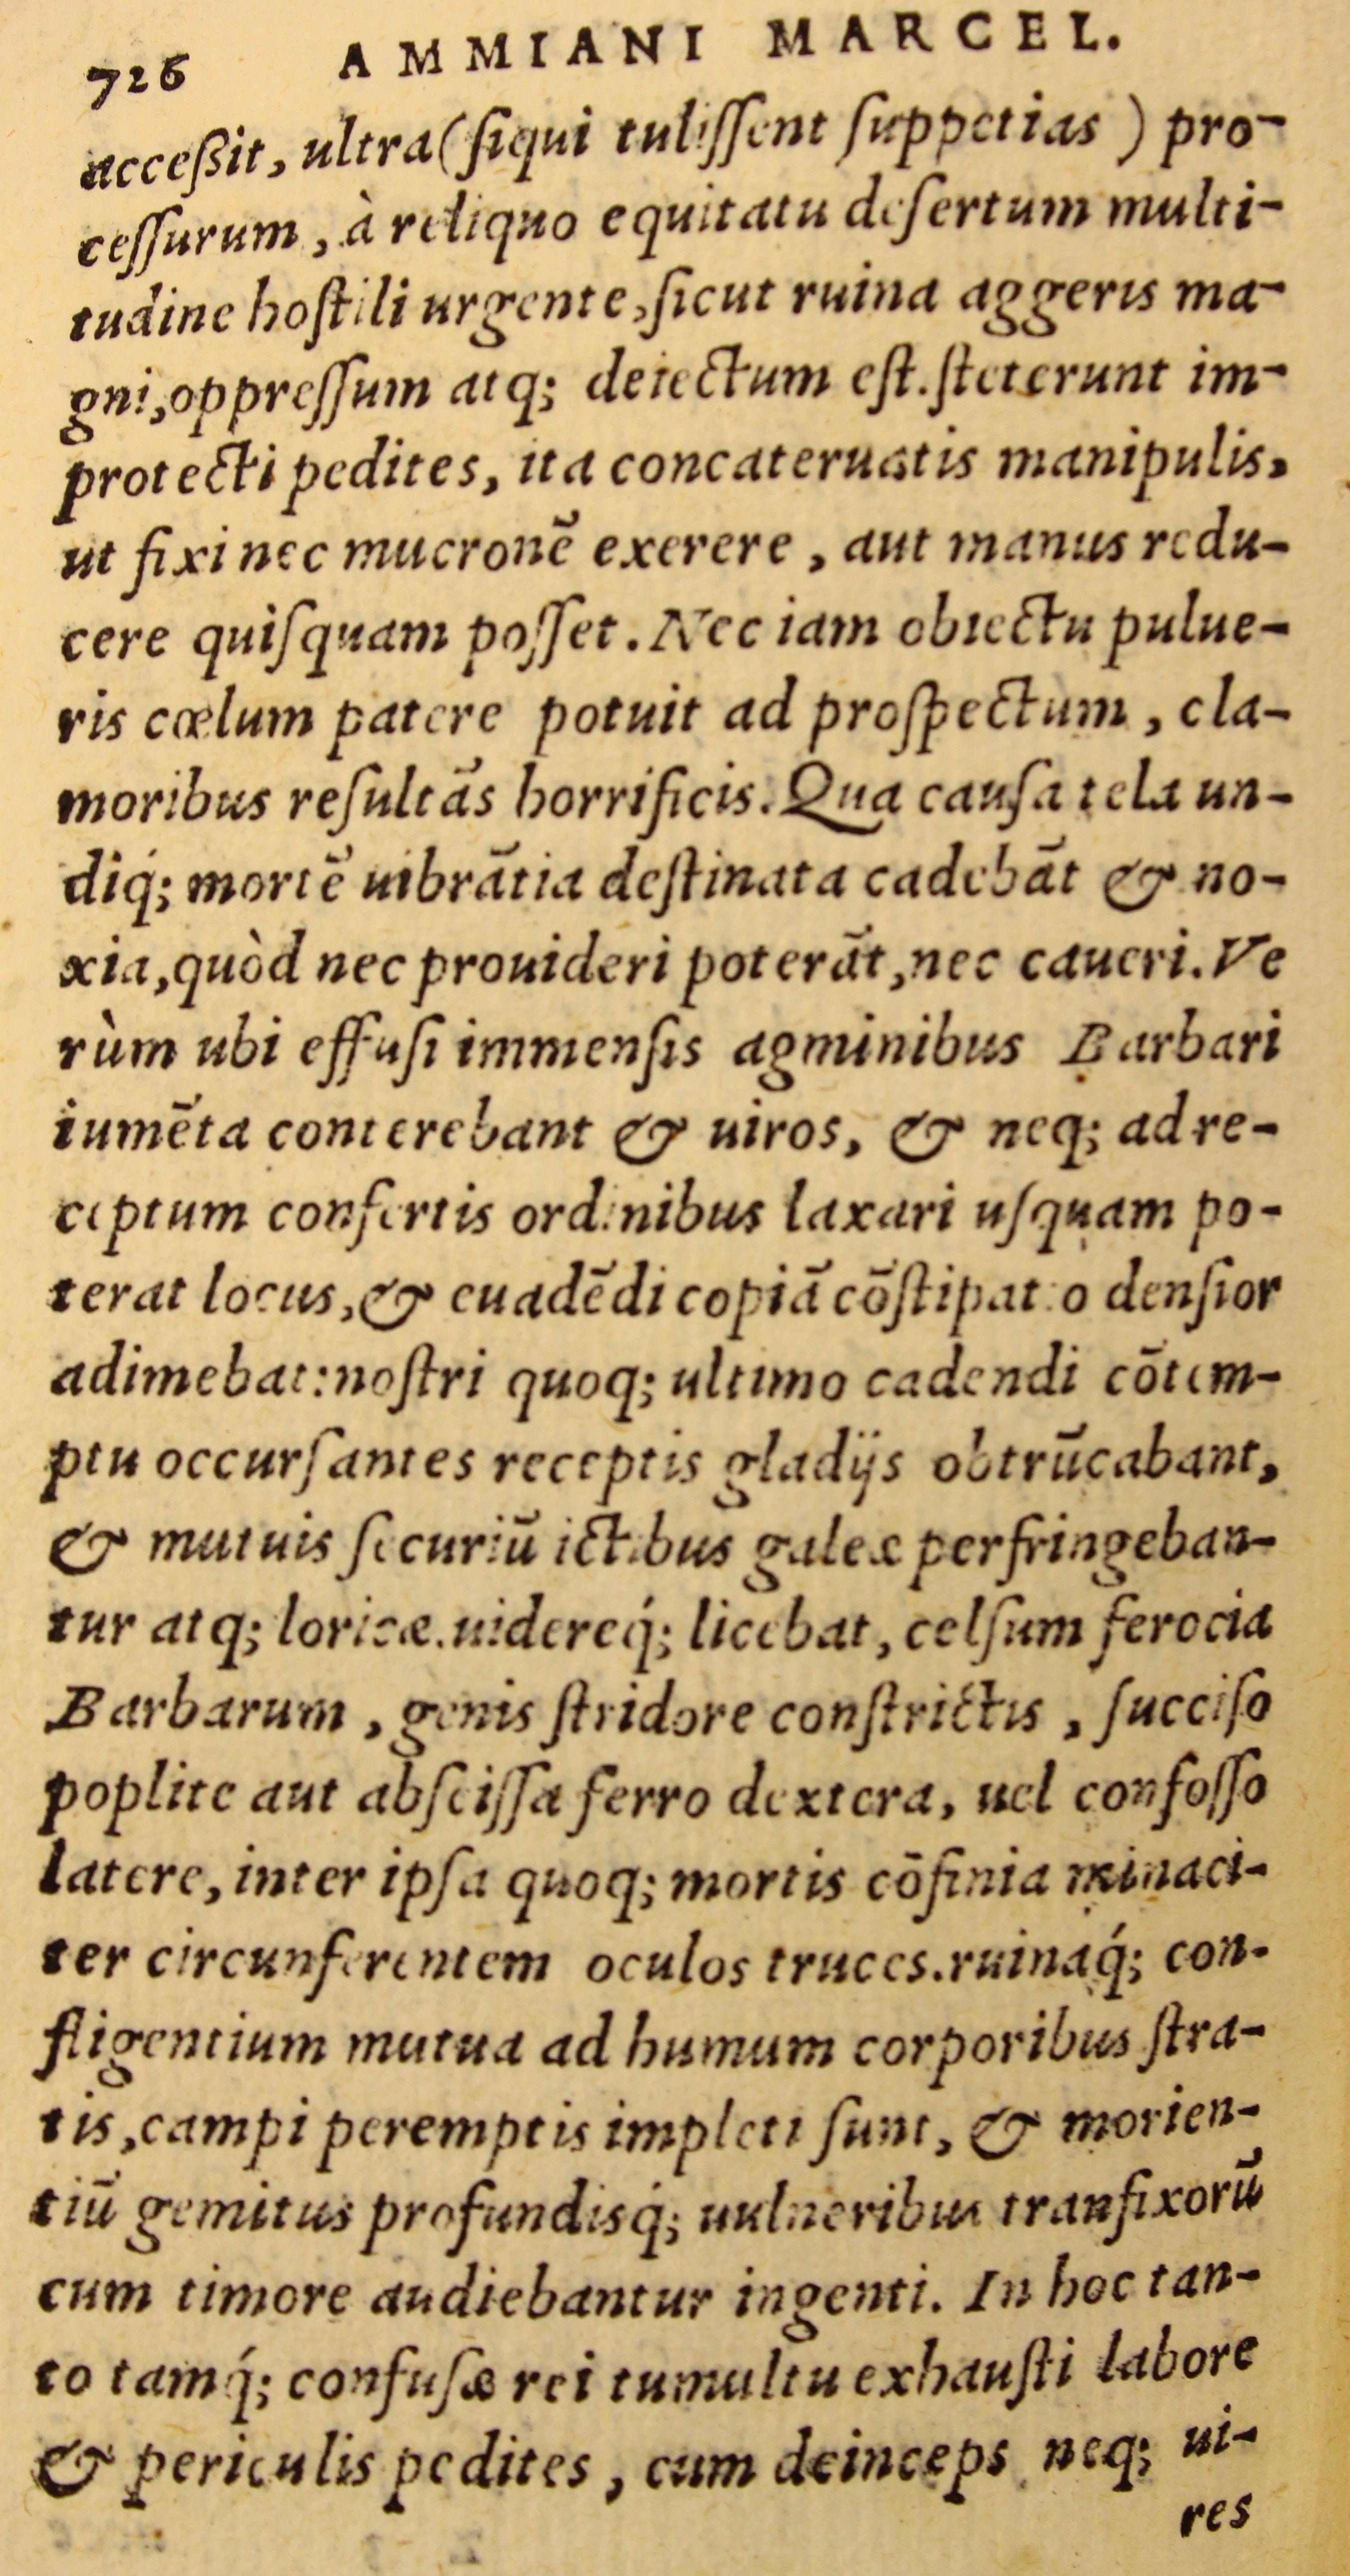 726 AMMIANI MARCEL.
acceßit, ultra (ſiqui tuliſſent ſuppetias) pro-
ceſſurum, à reliquo equitatu deſertum multi-
tudine hoſtili urgente, ſicut ruina aggeris ma-
gni, oppreſſum atq; deiectum eſt. ſteterunt im-
protecti pedites, ita concateruatis manipulis,
ut fixi nec mucronē exerere, aut manus redu-
cere quiſquam poſſet. Nec iam obiectu pulue-
ris cœlum patere potuit ad proſpectum, cla-
moribus reſultās horrificis. Qua cauſa tela un-
diq́; mortē uibrātia deſtinata cadebāt & no-
xia, quòd nec prouideri poterāt, nec caueri. Ve
rùm ubi effuſi immenſis agminibus Barbari
iumēta conterebant & uiros, & neq; ad re-
ceptum confertis ordinibus laxari uſquam po-
terat locus, & euadēdi copiā cōſtipatio denſior
adimebat: noſtri quoq; ultimo cadendi cōtem-
ptu occurſantes receptis gladijs obtrūcabant,
& mutuis ſecuriū ictibus galeæ perfringeban-
tur atq; loricæ. uidereq́; licebat, celſum ferocia
Barbarum, genis ſtridore conſtrictis, ſucciſo
poplite aut abſciſſa ferro dextera, uel confoſſo
latere, inter ipſa quoq; mortis cōfinia minaci-
ter circunferentem oculos truces. ruinaq́; con-
fligentium mutua ad humum corporibus ſtra-
tis, campi peremptis impleti ſunt, & morien-
tiū gemitus profundisq́; uulneribus tranfixorū
cum timore audiebantur ingenti. In hoc tan-
to tamq́; confuſæ rei tumultu exhauſti labore
& periculis pedites, cum deinceps neq; ui-
res